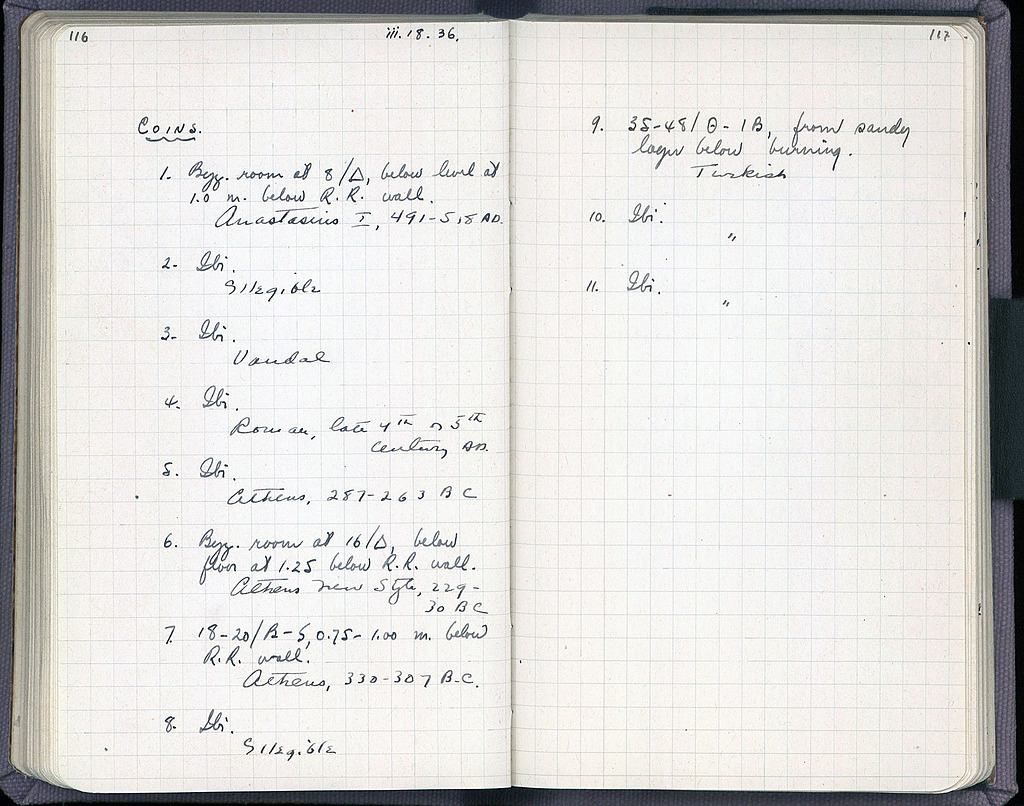 116
iii.18.36.
COINS.
1. Byz. room at 8/Δ, below level at
1.0 m. below R.R. wall.
Anastasius I, 491-518 AD.
2- Ibi.
Illegible
3- Ibi.
Vandal
4. Ibi.
Roman, late 4th or 5th
century AD.
5. Ibi.
Athens, 287-263 BC
6. Byz. room at 16/Δ, below
floor at 1.25 below R.R. wall.
Athens New Style, 229-
30 BC
7. 18-20/B-5, 0.75-1.00 m. below
R.R. wall.
Athens, 330-307 B.C.
8. Ibi.
Illegible
117
9. 35-48/Θ-1B, from sandy
layer below burning.
Turkish
10. Ibi.
"
11. Ibi.
"